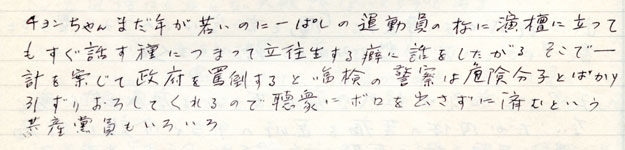 チョンちゃんまだ年が若いのに一ぱしの運動員の様に演壇に立って
もすぐ話す種につまって立往生する癖に話をしたがる そこで一
計を案じて政府を罵倒すると臨検の警察は危険分子とばかり
引ずりおろしてくれるので聴衆にボロを出さずに済むという
共産党員もいろいろ